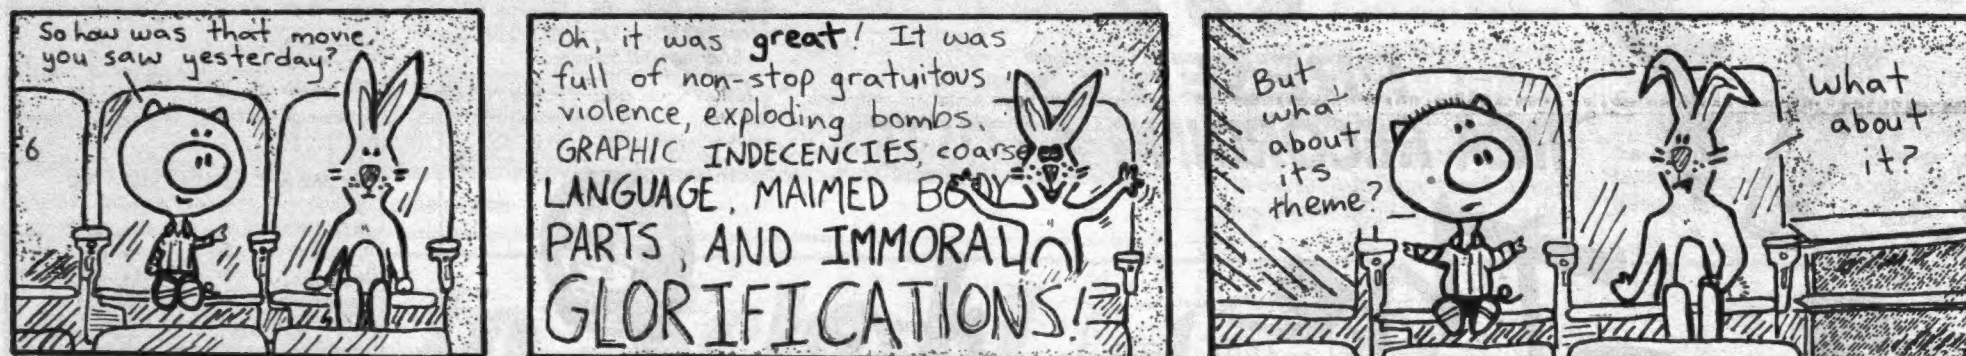 So how was that movie
you saw yesterday?
6
Oh, it was great! It was
full of non-stop gratuitous
violence, exploding bombs.
GRAPHIC INDECENCIES, coarse
LANGUAGE, MAIMED BODY
PARTS, AND IMMORAL
GLORIFICATIONS!
But
what
about
its
theme?
What
about
it?